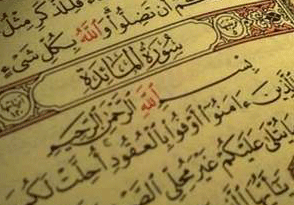 فللذكر مثل
أن تضلوا والله بكل شيء
سورة المائدة
بسم الله الرحمن الرحيم
الذين ءامنوا أوفوا بالعقود أحلت لكم
يتلى عليكم غير محلي الصيد